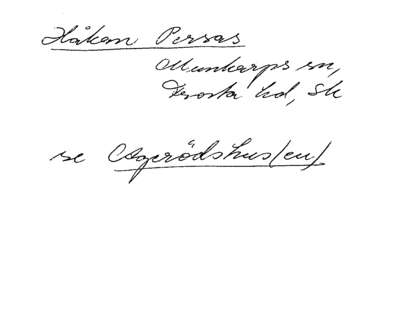 Håkan Persas
Munkarps sn,
Frosta hd, Sk
se Agerödshus(en)